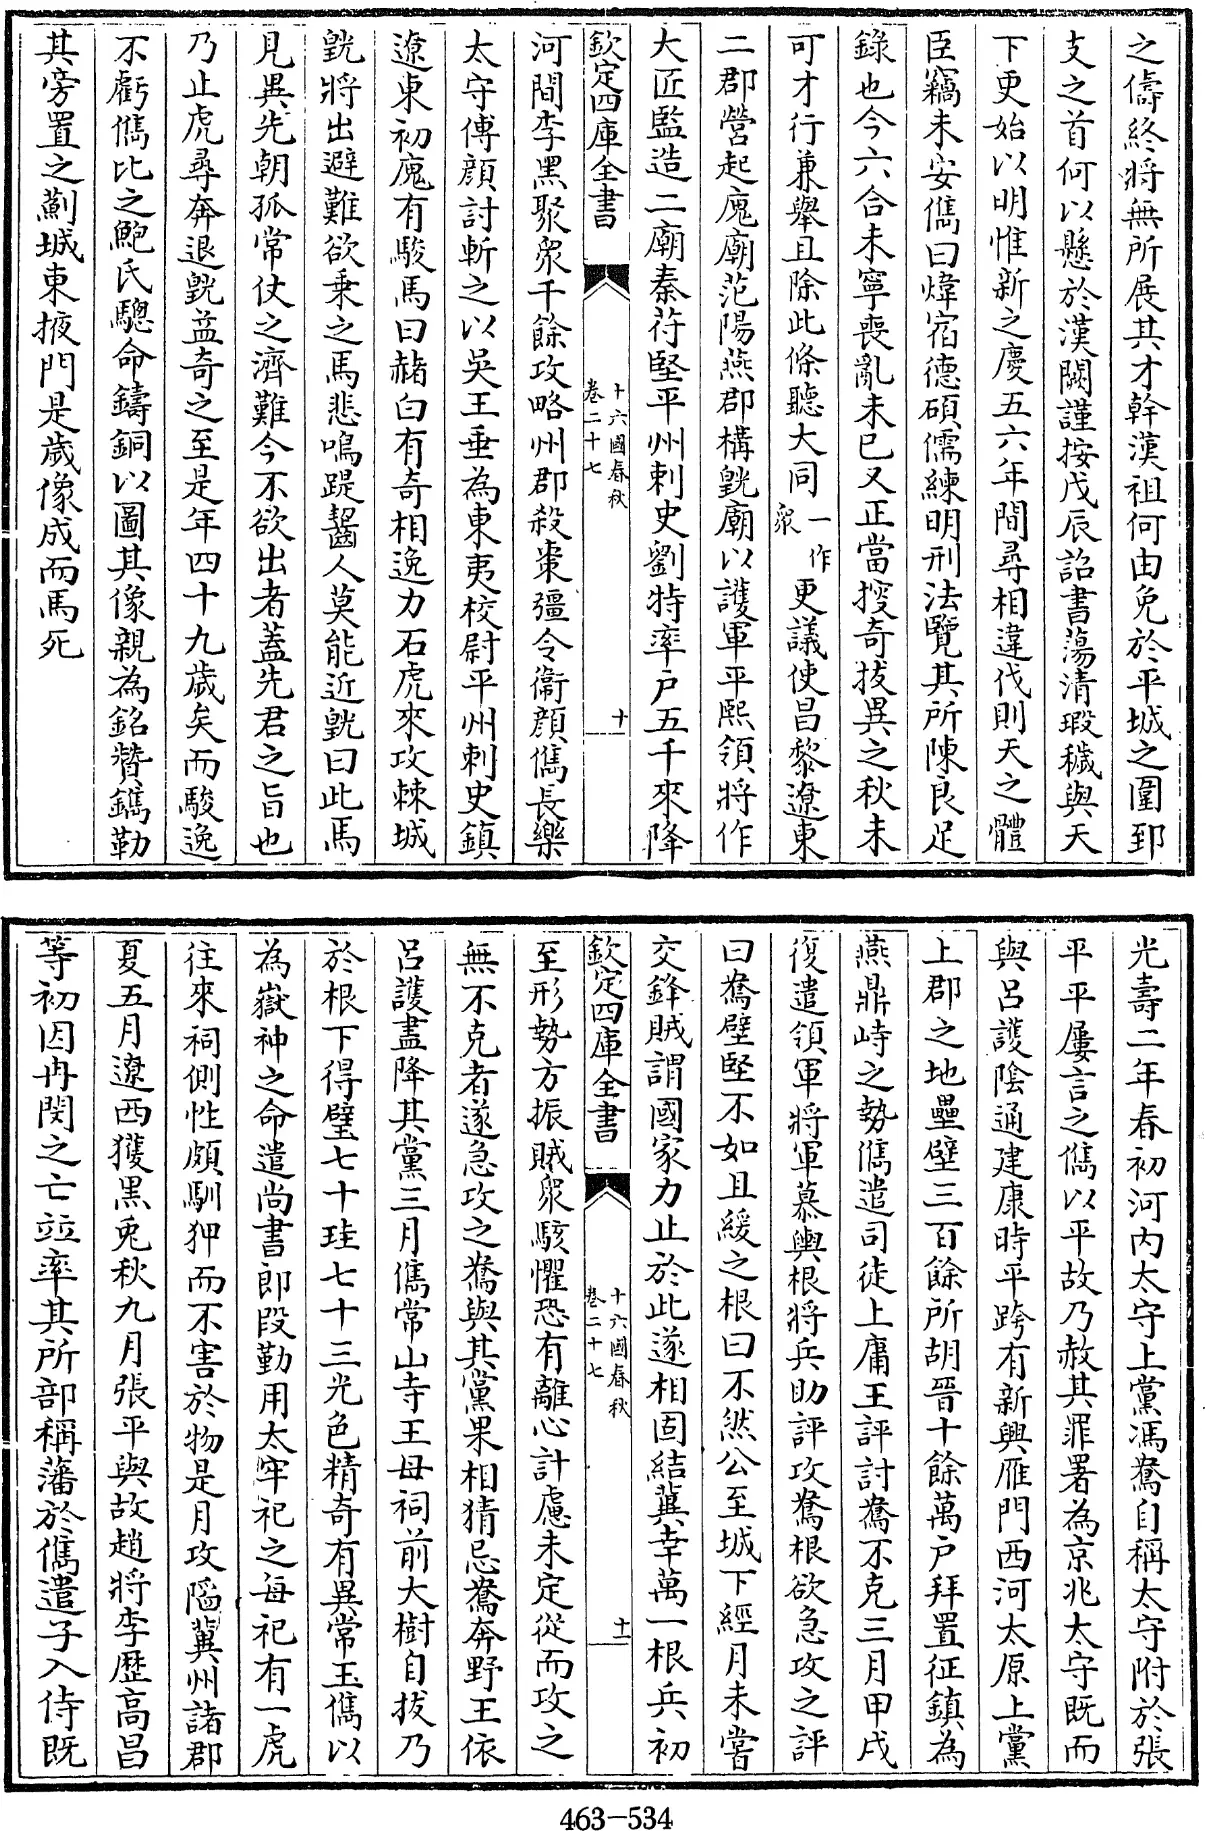 之儔終將無所展其才幹漢祖何由免於平城之圍郅
支之首何以懸於漢闕謹按戊辰詔書蕩清瑕穢與天
下更始以明惟新之慶五六年間尋相違伐則天之體
臣竊未安儁曰煒宿德碩儒練明刑法覽其所陳良足
錄也今六合未寧喪亂未已又正當搜奇拔異之秋未
可才行兼舉且除此條聽大同一作衆更議使昌黎遼東
二郡營起廆廟范陽燕郡構皝廟以護軍平熙領將作
大匠監造二廟秦苻堅平州刺史劉特率戶五千來降
欽定四庫全書
十六國春秋
卷二十七
十
河間李黑聚衆千餘攻略州郡殺棗彊令衞顔儁長樂
太守傅顔討斬之以吳王垂為東夷校尉平州刺史鎮
遼東初廆有駿馬曰赭白有奇相逸力石虎來攻棘城
皝將出避難欲乘之馬悲鳴踶齧人莫能近皝曰此馬
見異先朝孤常仗之濟難今不欲出者蓋先君之旨也
乃止虎尋奔退皝益奇之至是年四十九歲矣而駿逸
不虧儁比之鮑氏驄命鑄銅以圖其像親為銘贊鐫勒
其旁置之薊城東掖門是歲像成而馬死
光壽二年春初河內太守上黨馮鴦自稱太守附於張
平平屢言之儁以平故乃赦其罪署為京兆太守既而
與呂護陰通建康時平跨有新興雁門西河太原上黨
上郡之地壘壁三百餘所胡晉十餘萬戶拜置征鎮為
燕鼎峙之勢儁遣司徒上庸王評討鴦不克三月甲戌
復遣領軍將軍慕輿根將兵助評攻鴦根欲急攻之評
曰鴦壁堅不如且緩之根曰不然公至城下經月未嘗
交鋒賊謂國家力止於此遂相固結冀幸萬一根兵初
欽定四庫全書
十六國春秋
卷二十七
十一
至形勢方振賊衆駭懼恐有離心計慮未定從而攻之
無不克者遂急攻之鴦與其黨果相猜忌鴦奔野王依
呂護盡降其黨三月儁常山寺王母祠前大樹自拔乃
於根下得璧七十珪七十三光色精奇有異常玉儁以
為嶽神之命遣尚書郎段勤用太牢祀之每祀有一虎
往來祠側性頗馴狎而不害於物是月攻陷冀州諸郡
夏五月遼西獲黑兎秋九月張平與故趙將李歷高昌
等初因冉閔之亡竝率其所部稱藩於儁遣子入侍既
463-534